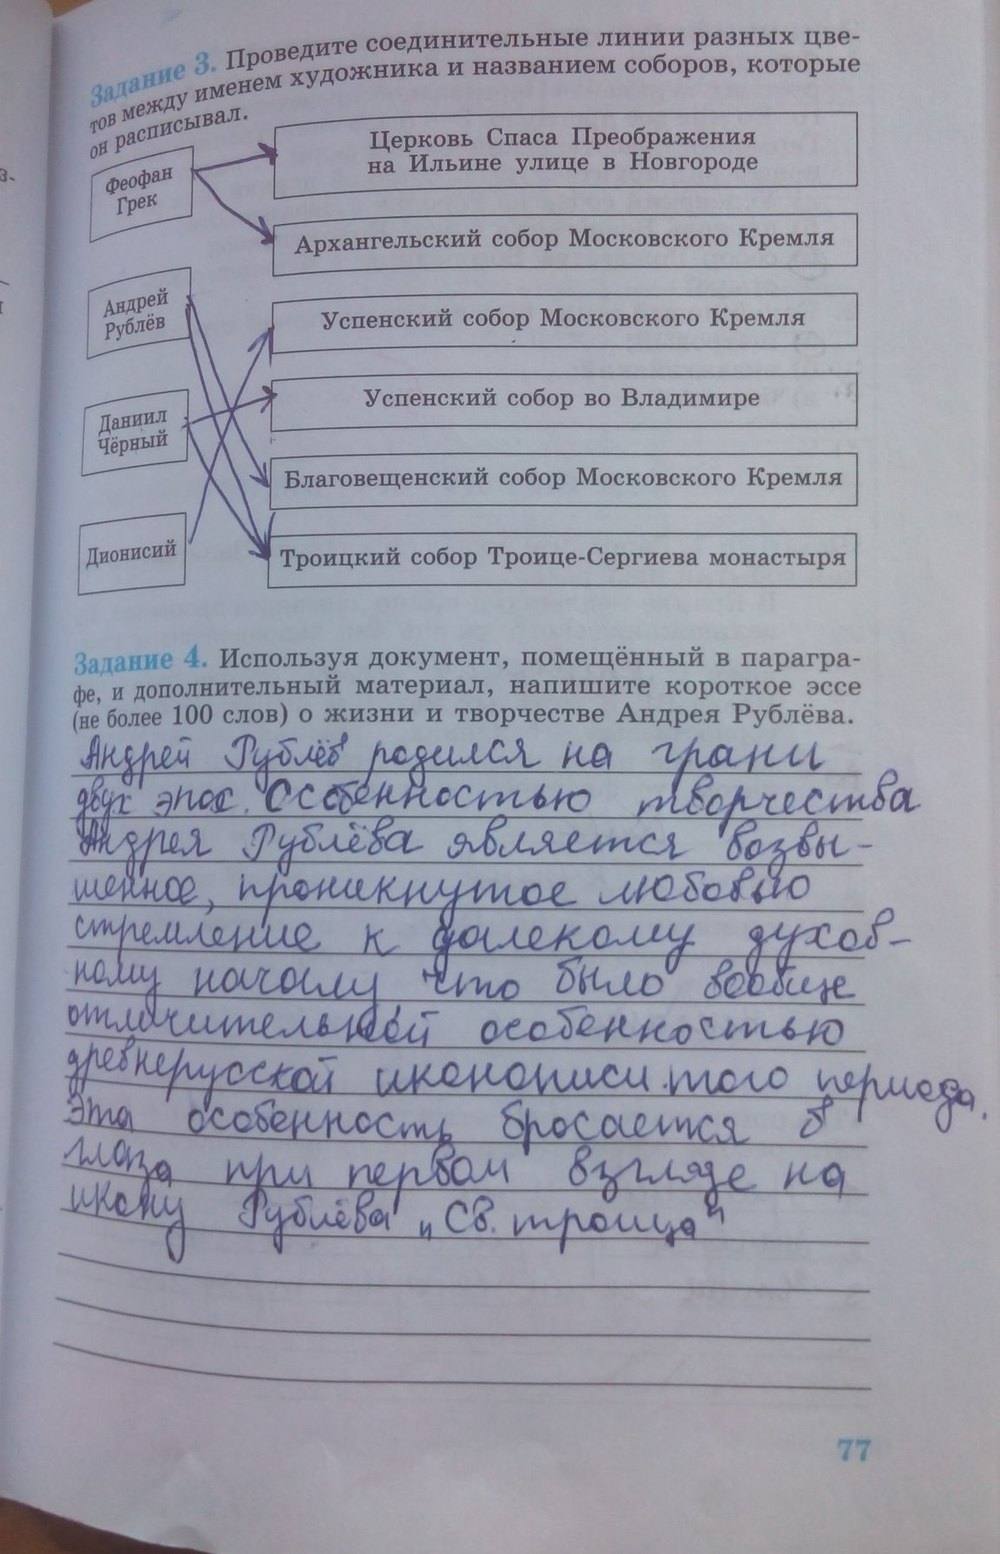 Задание 3. Проведите соединительные линии разных цве-
тов между именем художника и названием соборов, которые
он расписывал.
Феофан
Грек
Церковь Спаса Преображения
на Ильине улице в Новгороде
Архангельский собор Московского Кремля
Андрей
Рублёв
Успенский собор Московского Кремля
Даниил
Чёрный
Успенский собор во Владимире
Благовещенский собор Московского Кремля
Дионисий
Троицкий собор Троице-Сергиева монастыря
Задание 4. Используя документ, помещённый в парагра-
фе, и дополнительный материал, напишите короткое эссе
(не более 100 слов) о жизни и творчестве Андрея Рублёва.
Андрей Рублёв родился на грани
двух эпос. Особенностью творчества
Андрея Рублёва является возвы-
шенное, проникнутое любовью
стремление к далекому духов-
ному началу что было вообще
отличительной особенностью
древнерусской иконописи того периода.
Эта особенность бросается в
глаза при первом взгляде на
икону Рублёва „Св. троица"
77